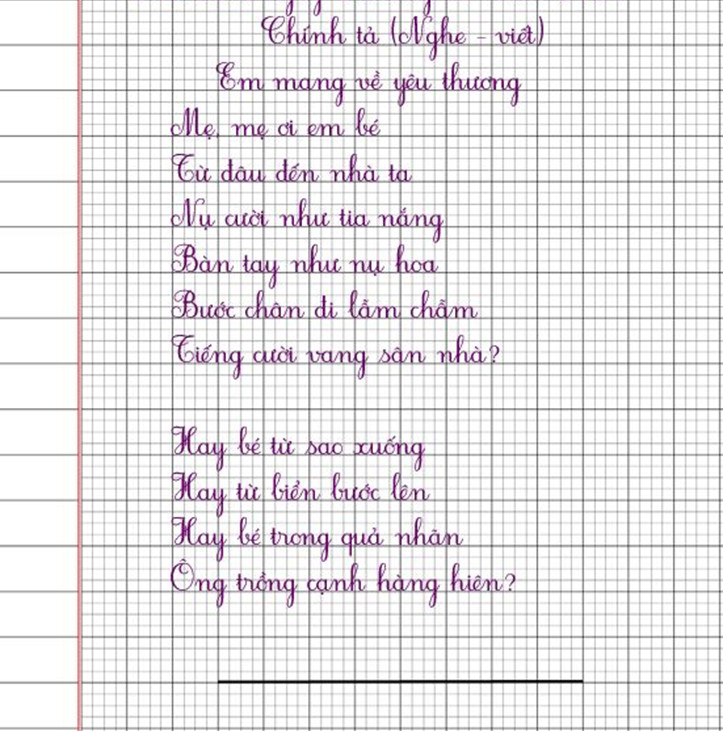 Chính tả (Nghe - viết)
Em mang về yêu thương
Mẹ, mẹ ơi em bé
Từ đâu đến nhà ta
Nụ cười như tia nắng
Bàn tay như nụ hoa
Bước chân đi lẫm chẫm
Tiếng cười vang sân nhà?
Hay bé từ sao xuống
Hay từ biển bước lên
Hay bé trong quả nhãn
Ông trồng cạnh hàng hiên?